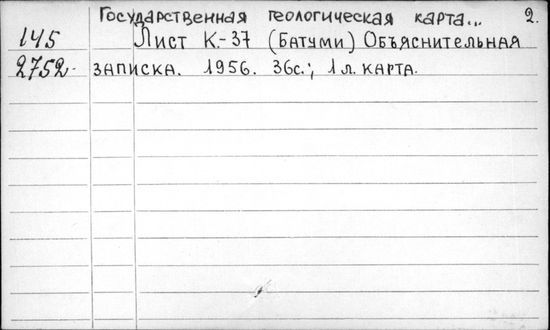 Государственная геологическая карта... 2.
145 Лист К-37 (Батуми) Объяснительная
2752 записка. 1956. 36с.; 1 л. карта.